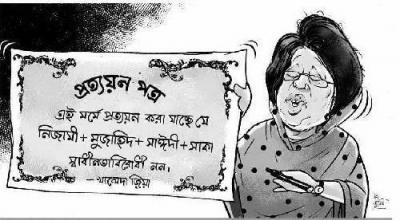 প্রত্যয়ন পত্র
এই মর্মে প্রত্যয়ন করা যাচ্ছে যে
নিজামী + মুজাহিদ + সাঈদী + সাকা
স্বাধীনতাবিরোধী নন।
- খালেদা জিয়া